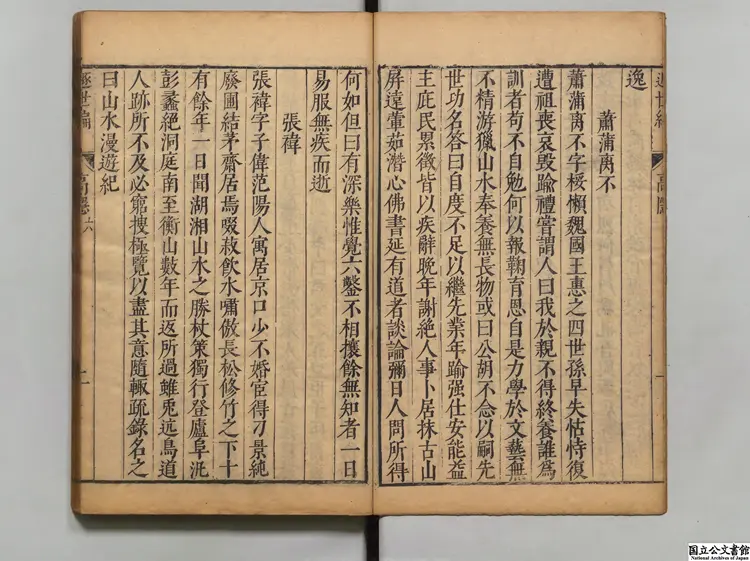 逸
蕭蒲离不
蕭蒲离不字桵懶魏國王惠之四世孫早失怙恃復
遭祖喪哀毀踰禮嘗謂人曰我於親不得終養誰為
訓者苟不自勉何以報鞠育恩自是力學於文藝無
不精游獵山水奉養無長物或曰公胡不念以嗣先
世功名答曰自度不足以繼先業年踰强仕安能益
主庇民累徵皆以疾辭晚年謝絕人事卜居抹古山
屏遠葷茹潛心佛書延有道者談論彌日人問所得
何如但曰有深樂惟覺六鑿不相攘餘無知者一日
易服無疾而逝
張禕
張禕字子偉范陽人寓居京口少不婚宦得刁景純
廢圃結茅齋居焉啜菽飲水嘯傲長松修竹之下十
有餘年一日聞湖湘山水之勝杖策獨行登廬阜汎
彭蠡絕洞庭南至衡山數年而返所過雖兎远鳥道
人跡所不及必窮搜極覽以盡其意隨輒疏錄名之
曰山水漫遊紀
逰世編
高隱
一
逰世編
高隱
六
二
国立公文書館
National Archives of Japan